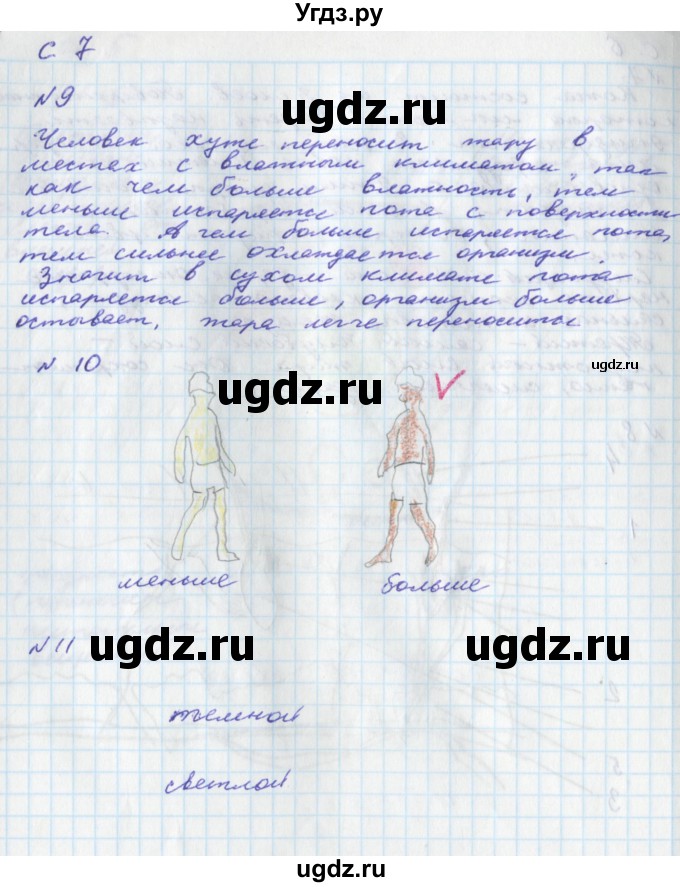 Угдз.ру
с 7
N9
ugdz.ru
Человек хуже переносит жару в
местах с влажным климатом, так
как чем больше влажность, тем
меньше испаряется пота с поверхности
тела. А чем больше испаряется пота,
тем сильнее охлаждается организм.
Значит в сухом климате пота
испаряется больше, организм больше
остывает, жара легче переноситься
N 10
ugdz.ru
ugdz.ru
меньше больше
N 11
ugdz.ru ugdz.ru
тёмной
светлой
ugdz.ru